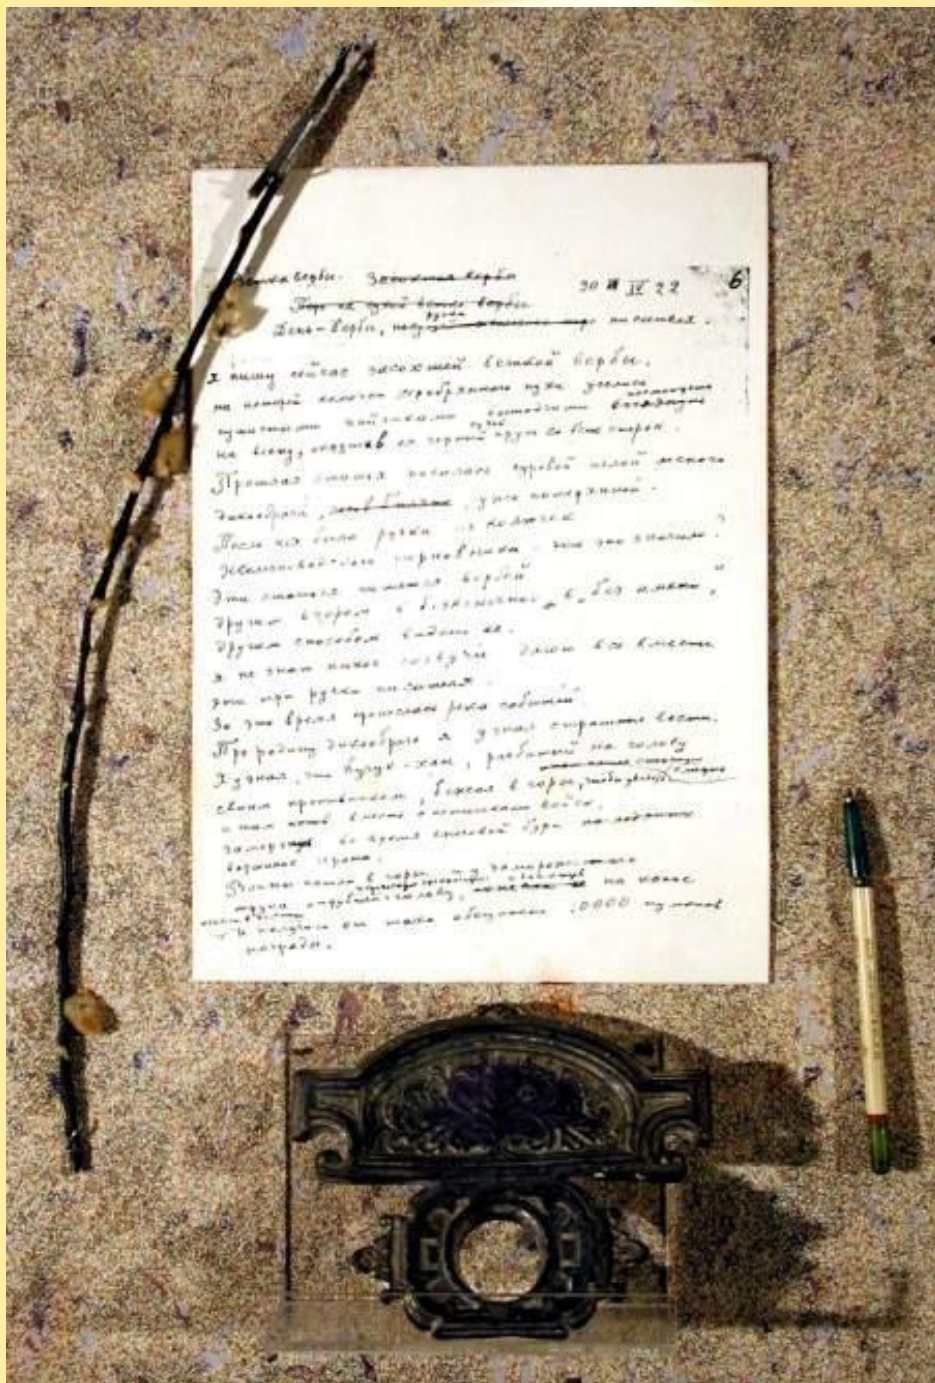 Ветка вербы. Засохшая верба
30 IV 22 6
День-верби, ручка писателя.
Я пишу сейчас засохшей веткой вербы,
на которой комочки серебряного пуха уселись
пушистыми зайчиками вышедшими посмотреть
на весну, окружив ея черный сухой прут со всех сторон.
Прошлая статья писалась суровой иглой лесного
дикобраза, уже потерянной.
После нея была ручка из колючек
Железноводского терновника – что это значило?
Эта статья пишется вербой
другим взором в бесконечное, в „без имени",
другим способом видеть ее.
Я не знаю какое созвучие дают все вместе
эти три ручки писателя.
За это время пронеслась река событий.
Про родину дикобраза я узнал страшные вести.
Я узнал, что Кучук-хан, разбитый на голову
своим противником, бежал в горы, чтобы увидеть
и там вместе с остатками войск,
замерз во время снеговой бури на ледяных
вершинах Ирана.
Воины пошли в горы и у замороженного
трупа отрубили голову, на копье
и получили от шаха обещанные 10000 туманов
награды.